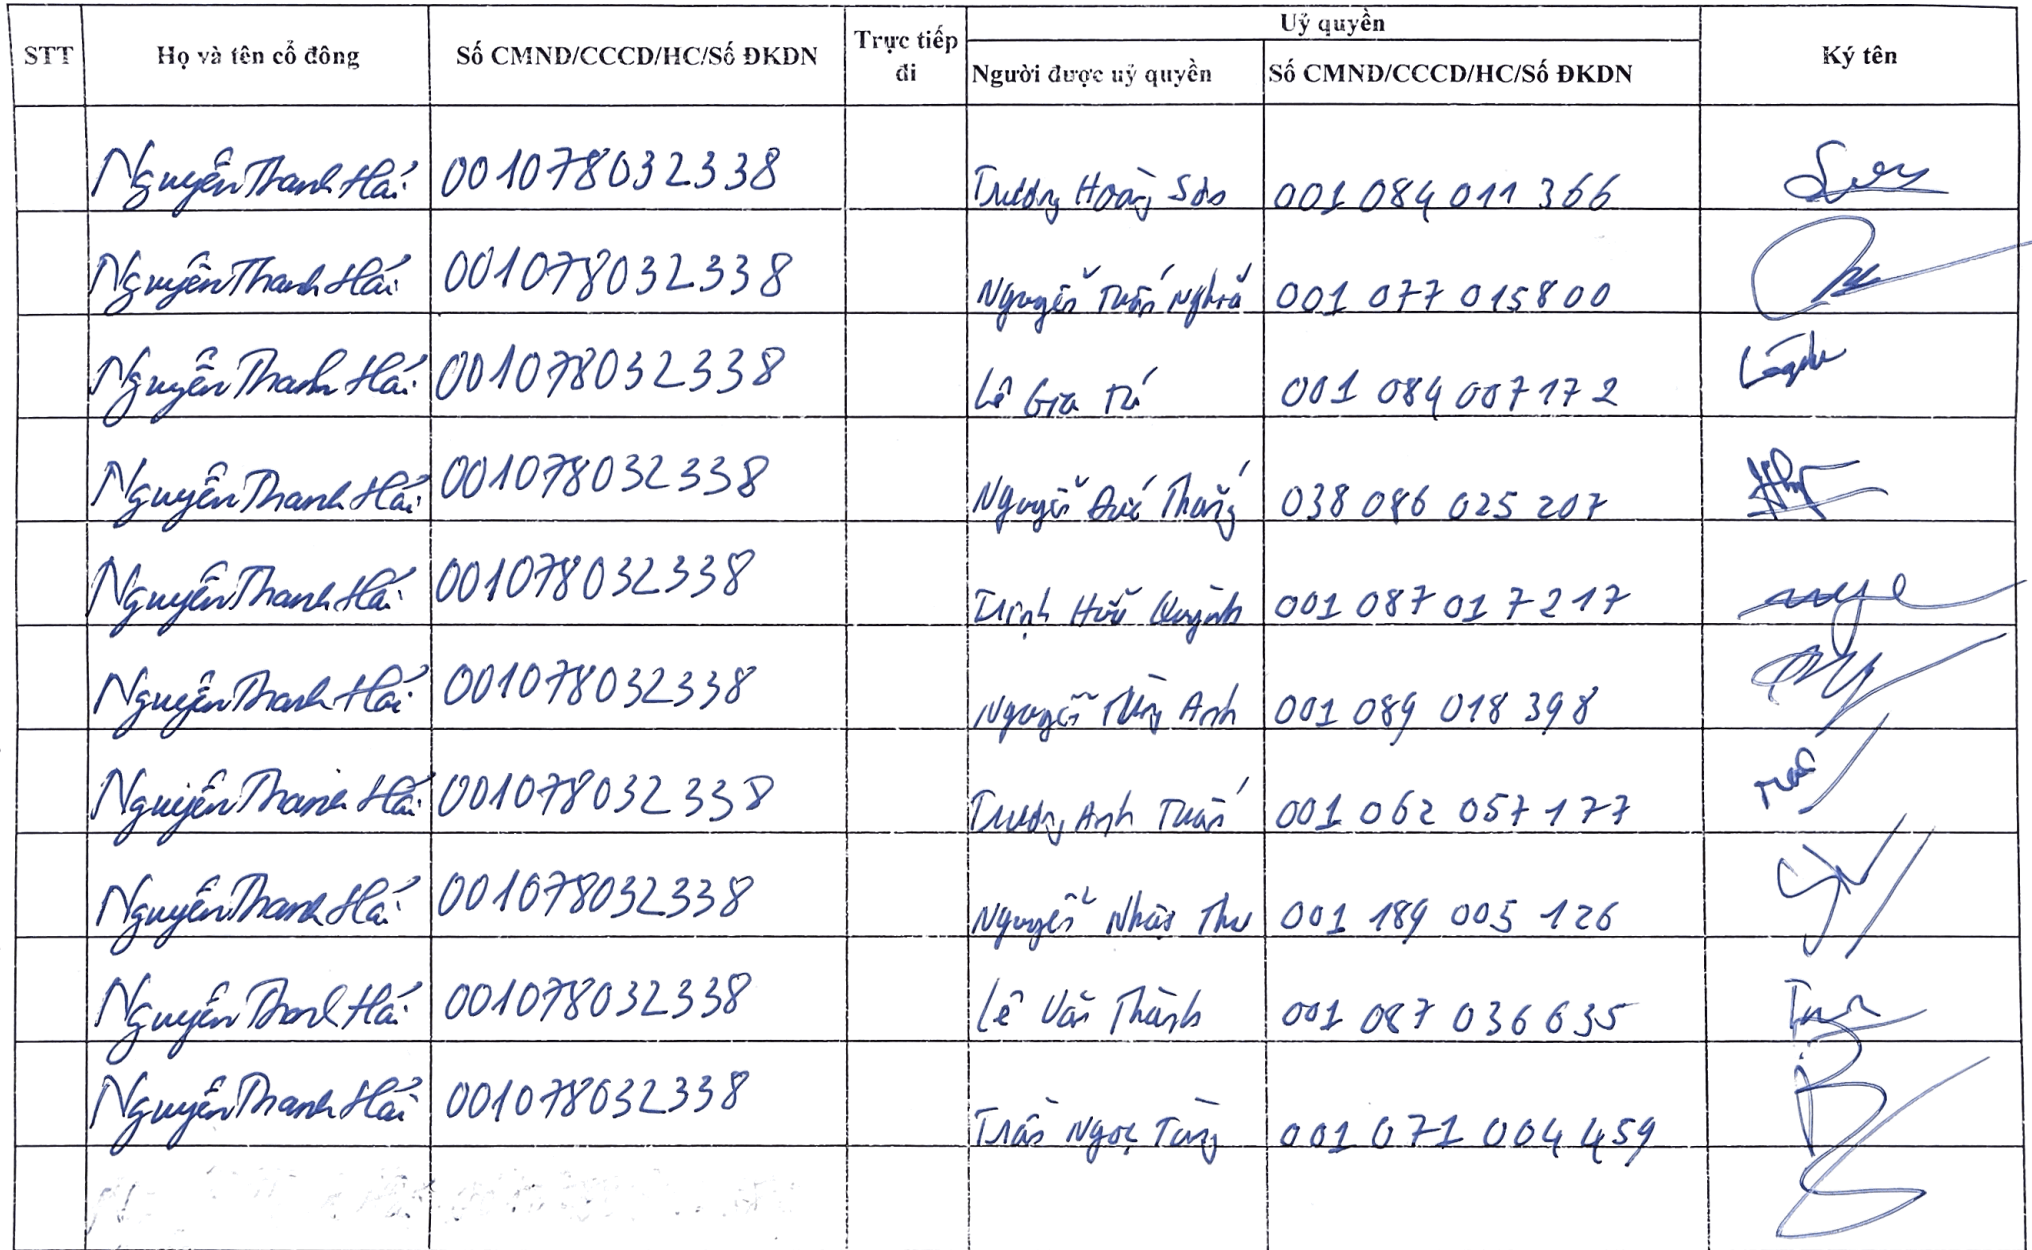 STT Họ và tên cổ đông Số CMND/CCCD/HC/Số ĐKDN Trực tiếp đi Uỷ quyền Ký tên
Người được uỷ quyền Số CMND/CCCD/HC/Số ĐKDN
Nguyễn Thanh Hải 001078032338 Trương Hoàng Sơn 001 084 011 366
Nguyễn Thanh Hải 001078032338 Nguyễn Tuấn Nghĩa 001 077 015800
Nguyễn Thanh Hải 001078032338 Lê Gia Tú 001 084 007172
Nguyễn Thanh Hải 001078032338 Nguyễn Đức Thắng 038 086 025 207
Nguyễn Thanh Hải 001078032338 Trịnh Hữu Quỳnh 001 087 017217
Nguyễn Thanh Hải 001078032338 Nguyễn Tùng Anh 001 089 018 398
Nguyễn Thanh Hải 001078032338 Trương Anh Tuấn 001 062 057 177
Nguyễn Thanh Hải 001078032338 Nguyễn Thư 001 189 005 126
Nguyễn Thanh Hải 001078032338 Lê Văn Thành 001 087 036 635
Nguyễn Thanh Hải 001078032338 Trần Ngọc Tùng 001 071 004 459